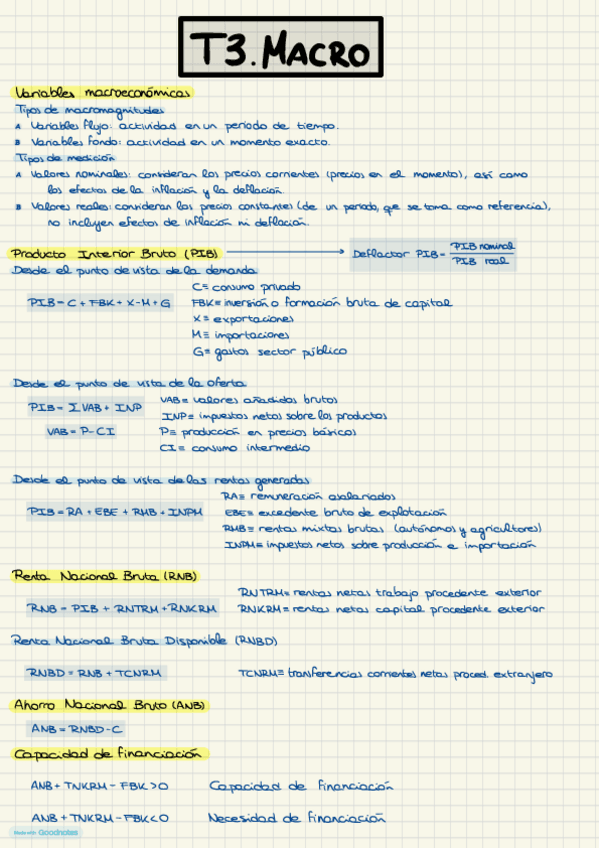 T3. MACRO
Variables macroeconómicas
Tipos de macromagnitudes
A Variables flujo: actividad en un periodo de tiempo.
B Variables fondo: actividad en un momento exacto.
Tipos de medición
A Valores nominales: consideran los precios corrientes (precios en el momento), así como
los efectos de la inflación y la deflación.
B Valores reales: consideran los precios constantes (de un periodo, que se toma como referencia),
no incluyen efectos de inflación ni deflación.
Producto Interior Bruto (PIB) → Deflactor PIB = PIB nominal / PIB real
Desde el punto de vista de la demanda
C ≡ consumo privado
PIB = C + FBK + X - M + G FBK ≡ inversión o formación bruta de capital
X ≡ exportaciones
M ≡ importaciones
G ≡ gastos sector público
Desde el punto de vista de la oferta
PIB = ΣVAB + INP VAB ≡ valores añadidos brutos
INP ≡ impuestos netos sobre los productos
VAB = P - CI P ≡ producción en precios básicos
CI ≡ consumo intermedio
Desde el punto de vista de las rentas generadas
RA ≡ remuneración asalariados
PIB = RA + EBE + RMB + INPM EBE ≡ excedente bruto de explotación
RMB ≡ rentas mixtas brutas (autónomos y agricultores)
INPM ≡ impuestos netos sobre producción e importación
Renta Nacional Bruta (RNB)
RNTRM ≡ rentas netas trabajo procedente exterior
RNB = PIB + RNTRM + RNKRM RNKRM ≡ rentas netas capital procedente exterior
Renta Nacional Bruta Disponible (RNBD)
RNBD = RNB + TCNRM TCNRM ≡ transferencias corrientes netas proced. extranjero
Ahorro Nacional Bruto (ANB)
ANB = RNBD - C
Capacidad de financiación
ANB + TNKRM - FBK > 0 Capacidad de financiación
ANB + TNKRM - FBK < 0 Necesidad de financiación
Made with Goodnotes